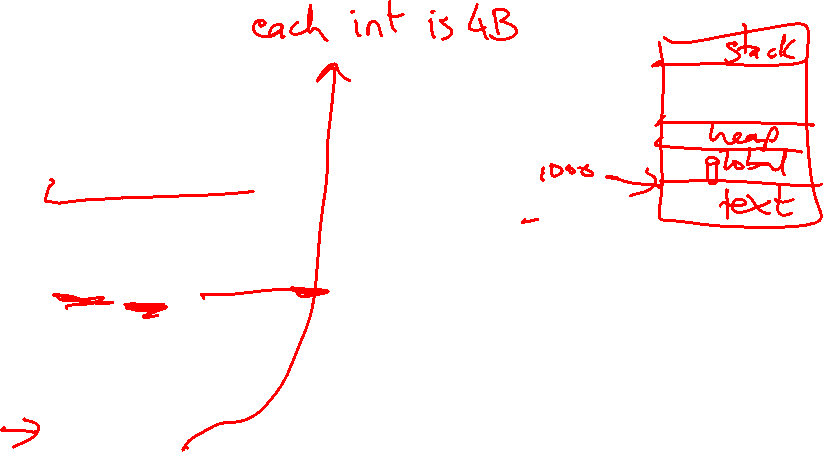 each int is 4B
stack
heap
global
1000
text